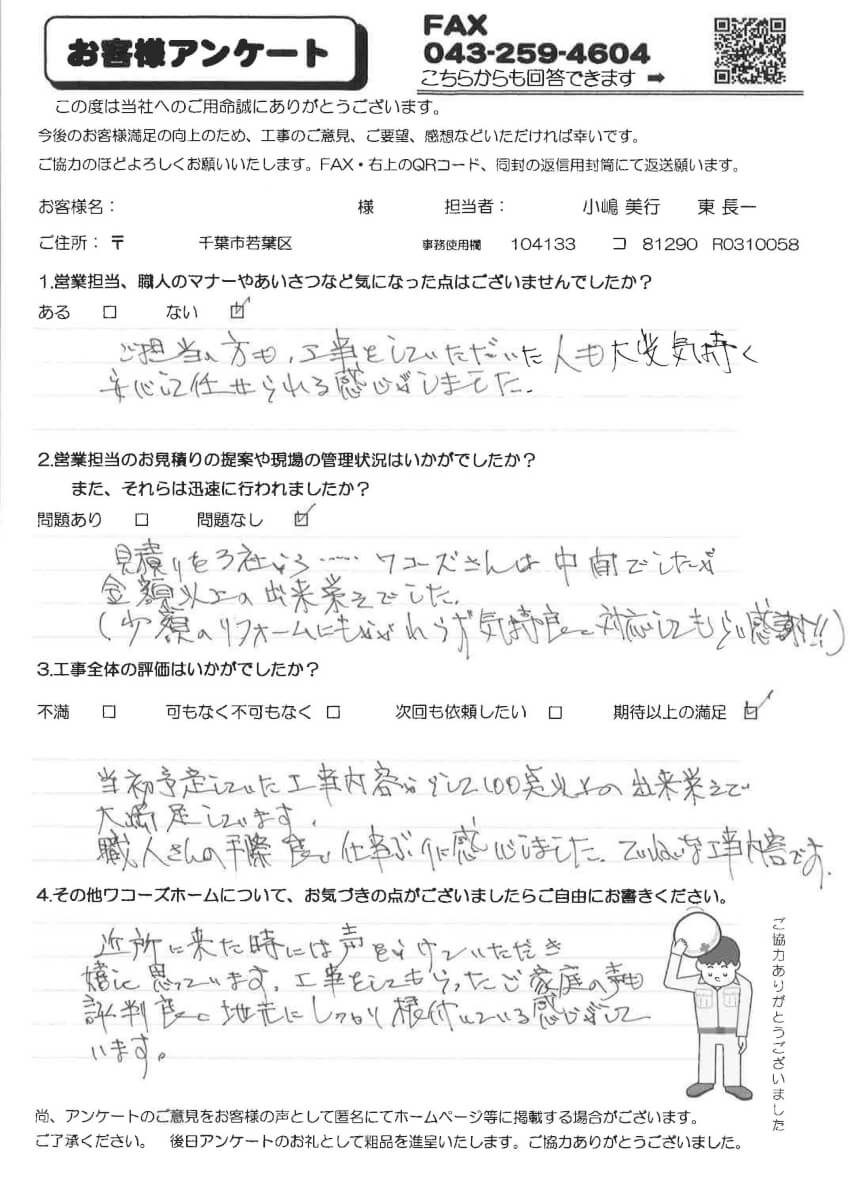 お客様アンケート
FAX
043-259-4604
こちらからも回答できます ➡
この度は当社へのご用命誠にありがとうございます。
今後のお客様満足の向上のため、工事のご意見、ご要望、感想などいただければ幸いです。
ご協力のほどよろしくお願いいたします。FAX・右上のQRコード、同封の返信用封筒にて返送願います。
お客様名： 様 担当者： 小嶋 美行 東 長一
ご住所： 〒 千葉市若葉区 事務使用欄 104133 コ 81290 R0310058
1.営業担当、職人のマナーやあいさつなど気になった点はございませんでしたか？
ある □ ない ☑
ご担当の方も、工事をしていただいた人も大変気持く
安心して任せられる感じがしました.
2.営業担当のお見積りの提案や現場の管理状況はいかがでしたか？
また、それらは迅速に行われましたか？
問題あり □ 問題なし ☑
見積りを3社から…… ワコーズさんは中間でしたが
金額以上の出来栄えでした.
(少額のリフォームにもかかわらず気持良く対応してもらい感謝!!)
3.工事全体の評価はいかがでしたか？
不満 □ 可もなく不可もなく □ 次回も依頼したい □ 期待以上の満足 ☑
当初予定していた工事内容からして100点以上の出来栄えで
大満足しています.
職人さんの手際良い仕事ぶりに感心しました. ていねいな工事内容です.
4.その他ワコーズホームについて、お気づきの点がございましたらご自由にお書きください。
近所に来た時には声をかけていただき
嬉しく思っています. 工事をしてもらったご家庭の声も
評判良く地元にしっかり根付いている感じがして
います。
ご協力ありがとうございました
尚、アンケートのご意見をお客様の声として匿名にてホームページ等に掲載する場合がございます。
ご了承ください。 後日アンケートのお礼として粗品を進呈いたします。ご協力ありがとうございました。